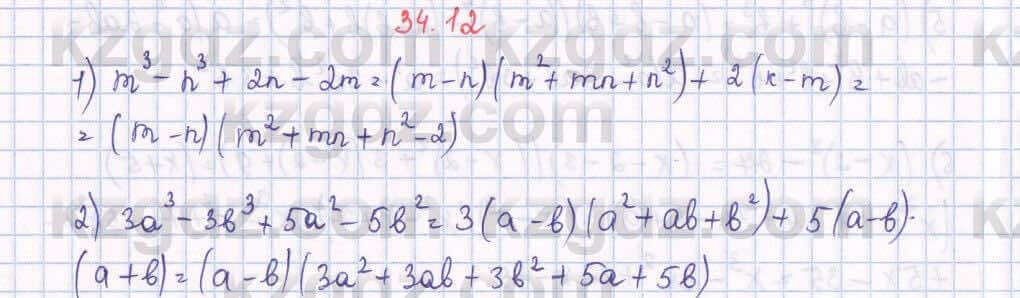 34.12
1) m³ - n³ + 2n - 2m = (m - n)(m² + mn + n²) + 2(k - m) =
= (m - n)(m² + mn + n² - 2)
2) 3a³ - 3b³ + 5a² - 5b² = 3(a - b)(a² + ab + b²) + 5(a - b)·
(a + b) = (a - b)(3a² + 3ab + 3b² + 5a + 5b)
kzgdz.com